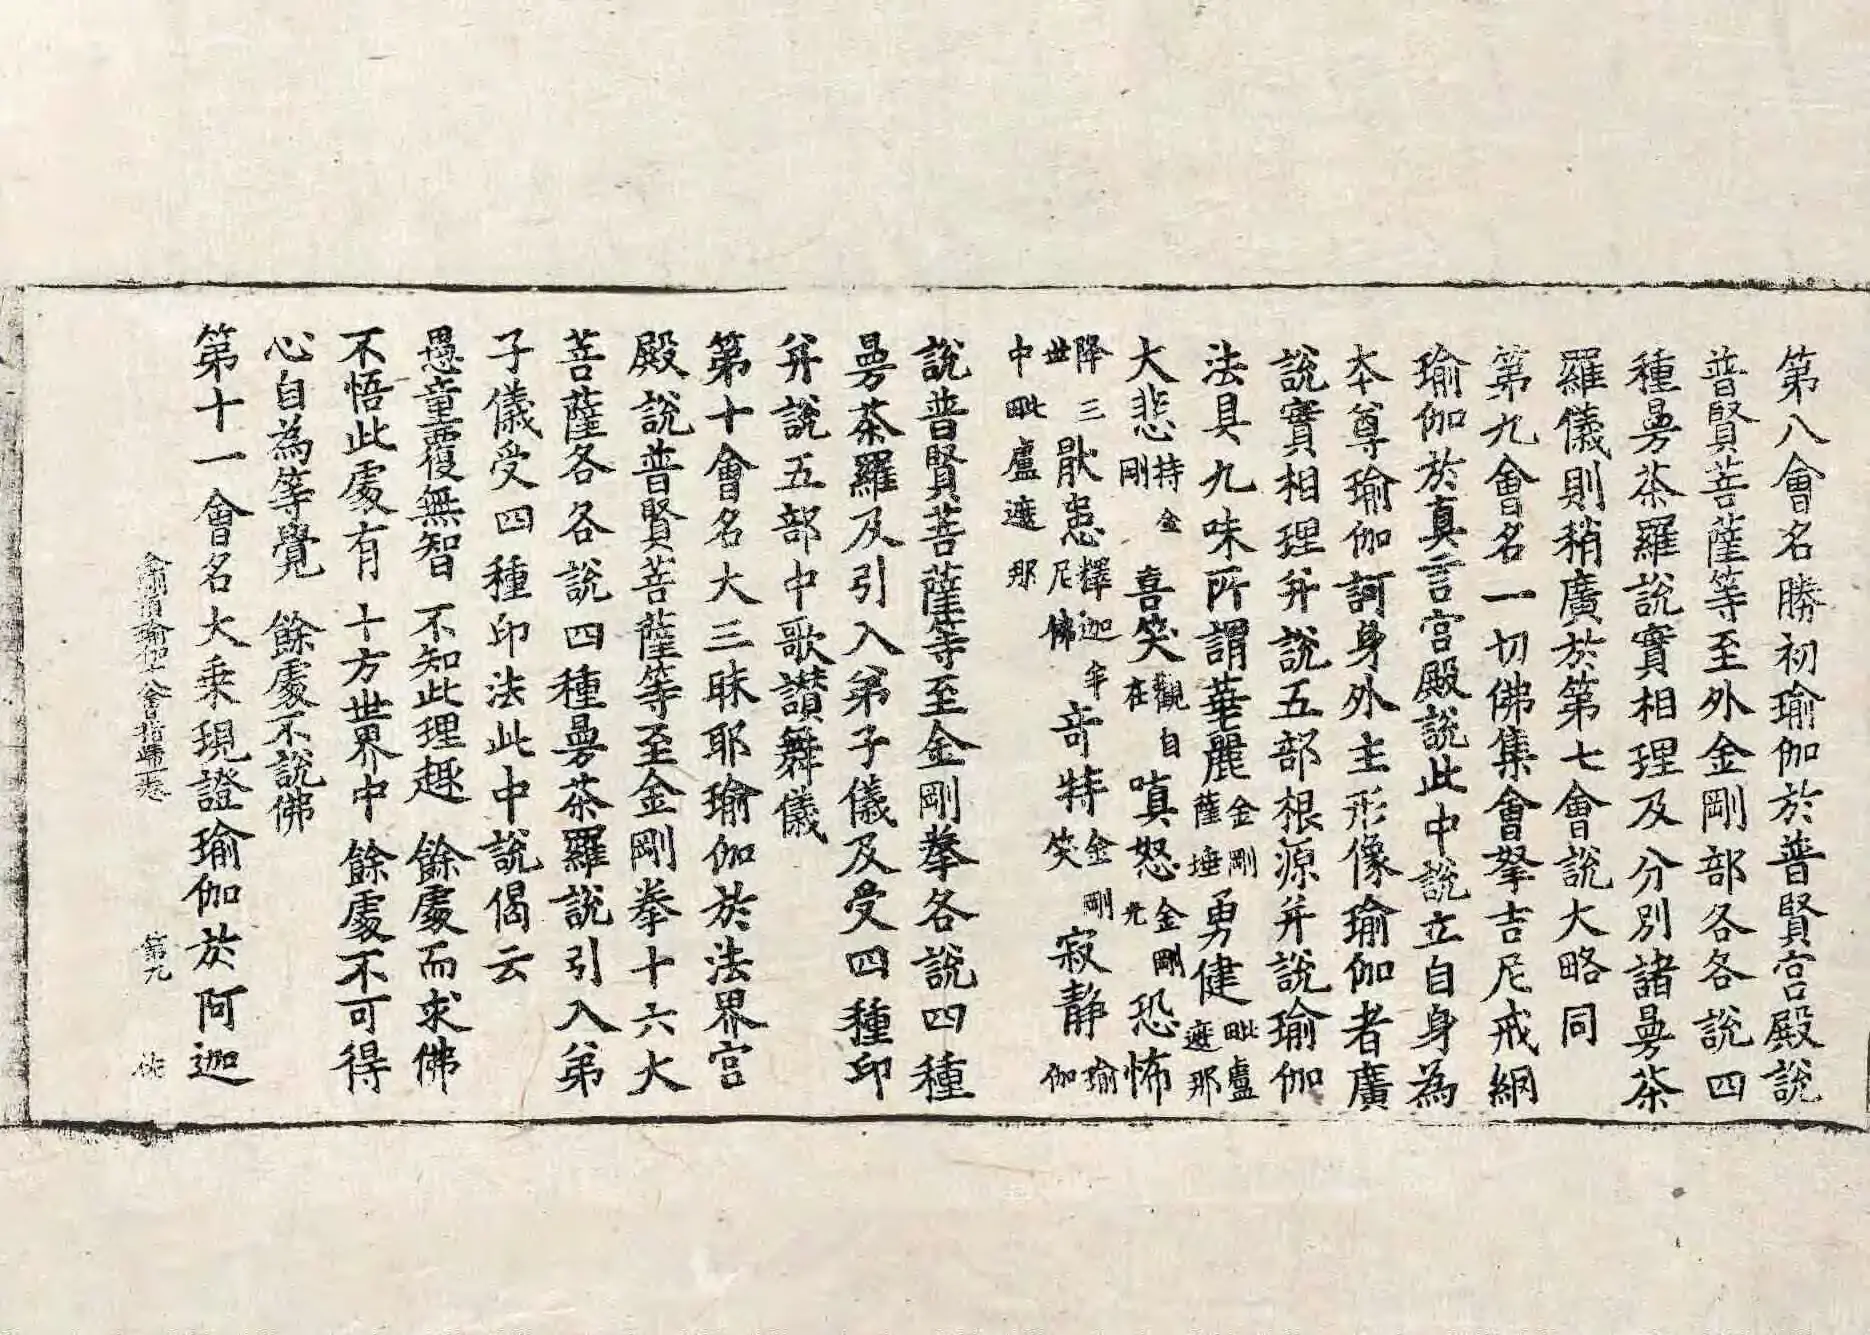 第八會名勝初瑜伽於普賢宮殿說
普賢菩薩等至外金剛部各各說四
種曼荼羅說實相理及分別諸曼荼
羅儀則稍廣於第七會說大略同
第九會名一切佛集會拏吉尼戒網
瑜伽於真言宮殿說此中說立自身為
本尊瑜伽訶身外主形像瑜伽者廣
說實相理并說五部根源并說瑜伽
法具九味所謂華麗金剛薩埵勇健毗盧遮那
大悲持金剛喜笑觀自在嗔怒金剛光恐怖
降三世猒患釋迦牟尼佛奇特金剛笑寂靜瑜伽
中毗盧遮那
說普賢菩薩等至金剛拳各說四種
曼荼羅及引入弟子儀及受四種印
并說五部中歌讚舞儀
第十會名大三昧耶瑜伽於法界宮
殿說普賢菩薩等至金剛拳十六大
菩薩各各說四種曼荼羅說引入弟
子儀受四種印法此中說偈云
愚童覆無智 不知此理趣 餘處而求佛
不悟此處有 十方世界中 餘處不可得
心自為等覺 餘處不說佛
第十一會名大乘現證瑜伽於阿迦
第九